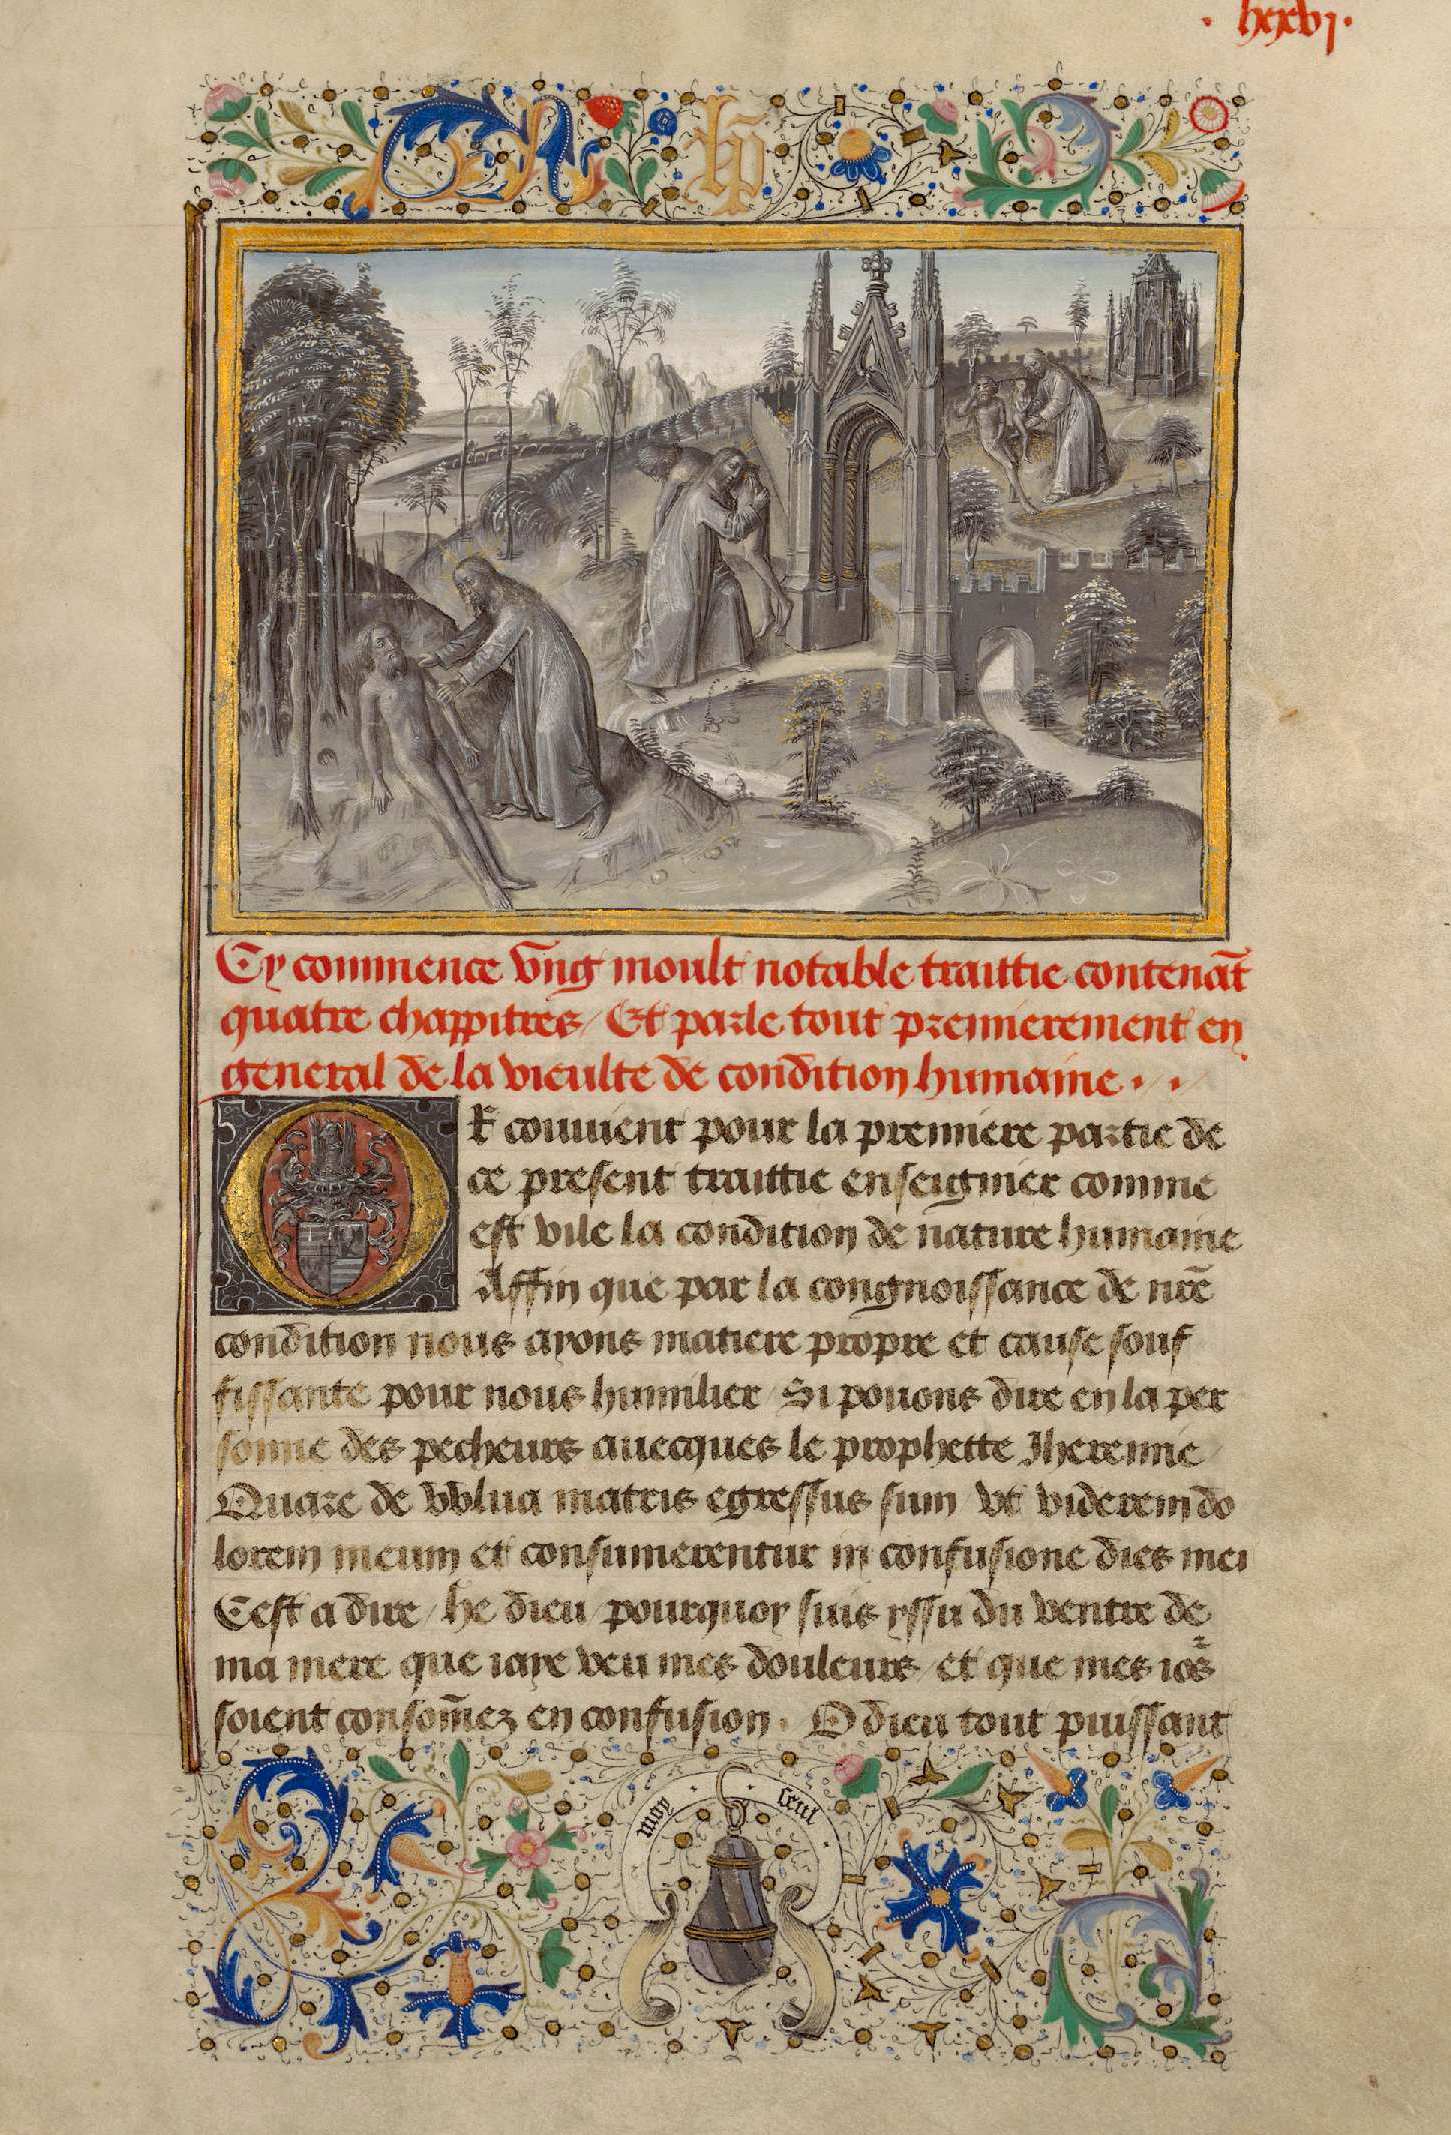 · lxxxvj ·
Cy commence vng moult notable traittie contenāt
quatre chappitres / Et parle tout premierement en
general de la vieulte de condition humaine · / ·
OR couuient pour la premiere partie de
ce present traittie enseignier comme
est vile la condition de nature humaine
Affin que par la congnoissance de nr̄e
condition nous ayons matiere propre et cause souf
fissante pour nous humilier / Si pouons dire en la per
sonne des pecheurs auecques le prophette Jheremie /
Quare de vvlua matris egressus sum vt viderem do
lorem meum et consumerentur in confusione dies mei
Cest a dire / he dieu / pourquoy suis yssu du ventre de
ma mere que iaye veu mes douleurs / et que mes iors
soient consom̄ez en confusion · O dieu tout puissant
moy · seul ·